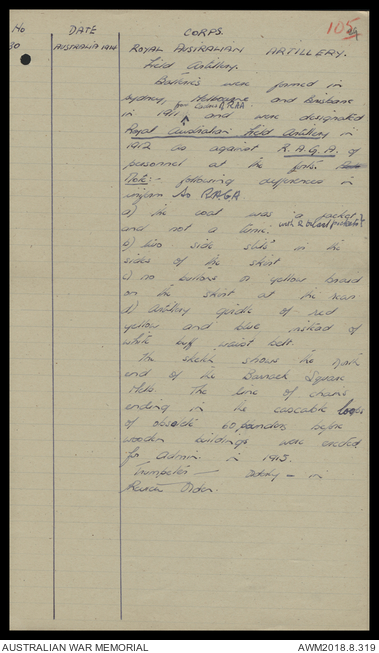 No DATE CORPS. 105
30 AUSTRALIA 1914 ROYAL AUSTRALIAN ARTILLERY.
Field Artillery.
Batteries were formed in
Sydney, Melbourne and Brisbane
in 1911 ^ for RAA and were designated
Royal Australian Field Artillery in
1912 as against R.A.G.A. of
personnel at the forts.
Note:- following differences in
uniform to RAGA
a) the coat was a jacket
and not a tunic. with 2 breast pockets
b) two side slits in the
sides of the skirt
c) no buttons or yellow braid
on the skirt at the rear
d) artillery girdle of red
yellow and blue instead of
white buff waist belt.
The sketch shows the north
end of the Barrack Square
The line of chains
ending in the cascable loops
of obsolete 60 pounders before
wooden buildings were erected
for Admin. in 1915.
Trumpeter — — in
Review Order.
AUSTRALIAN WAR MEMORIAL
AWM2018.8.319